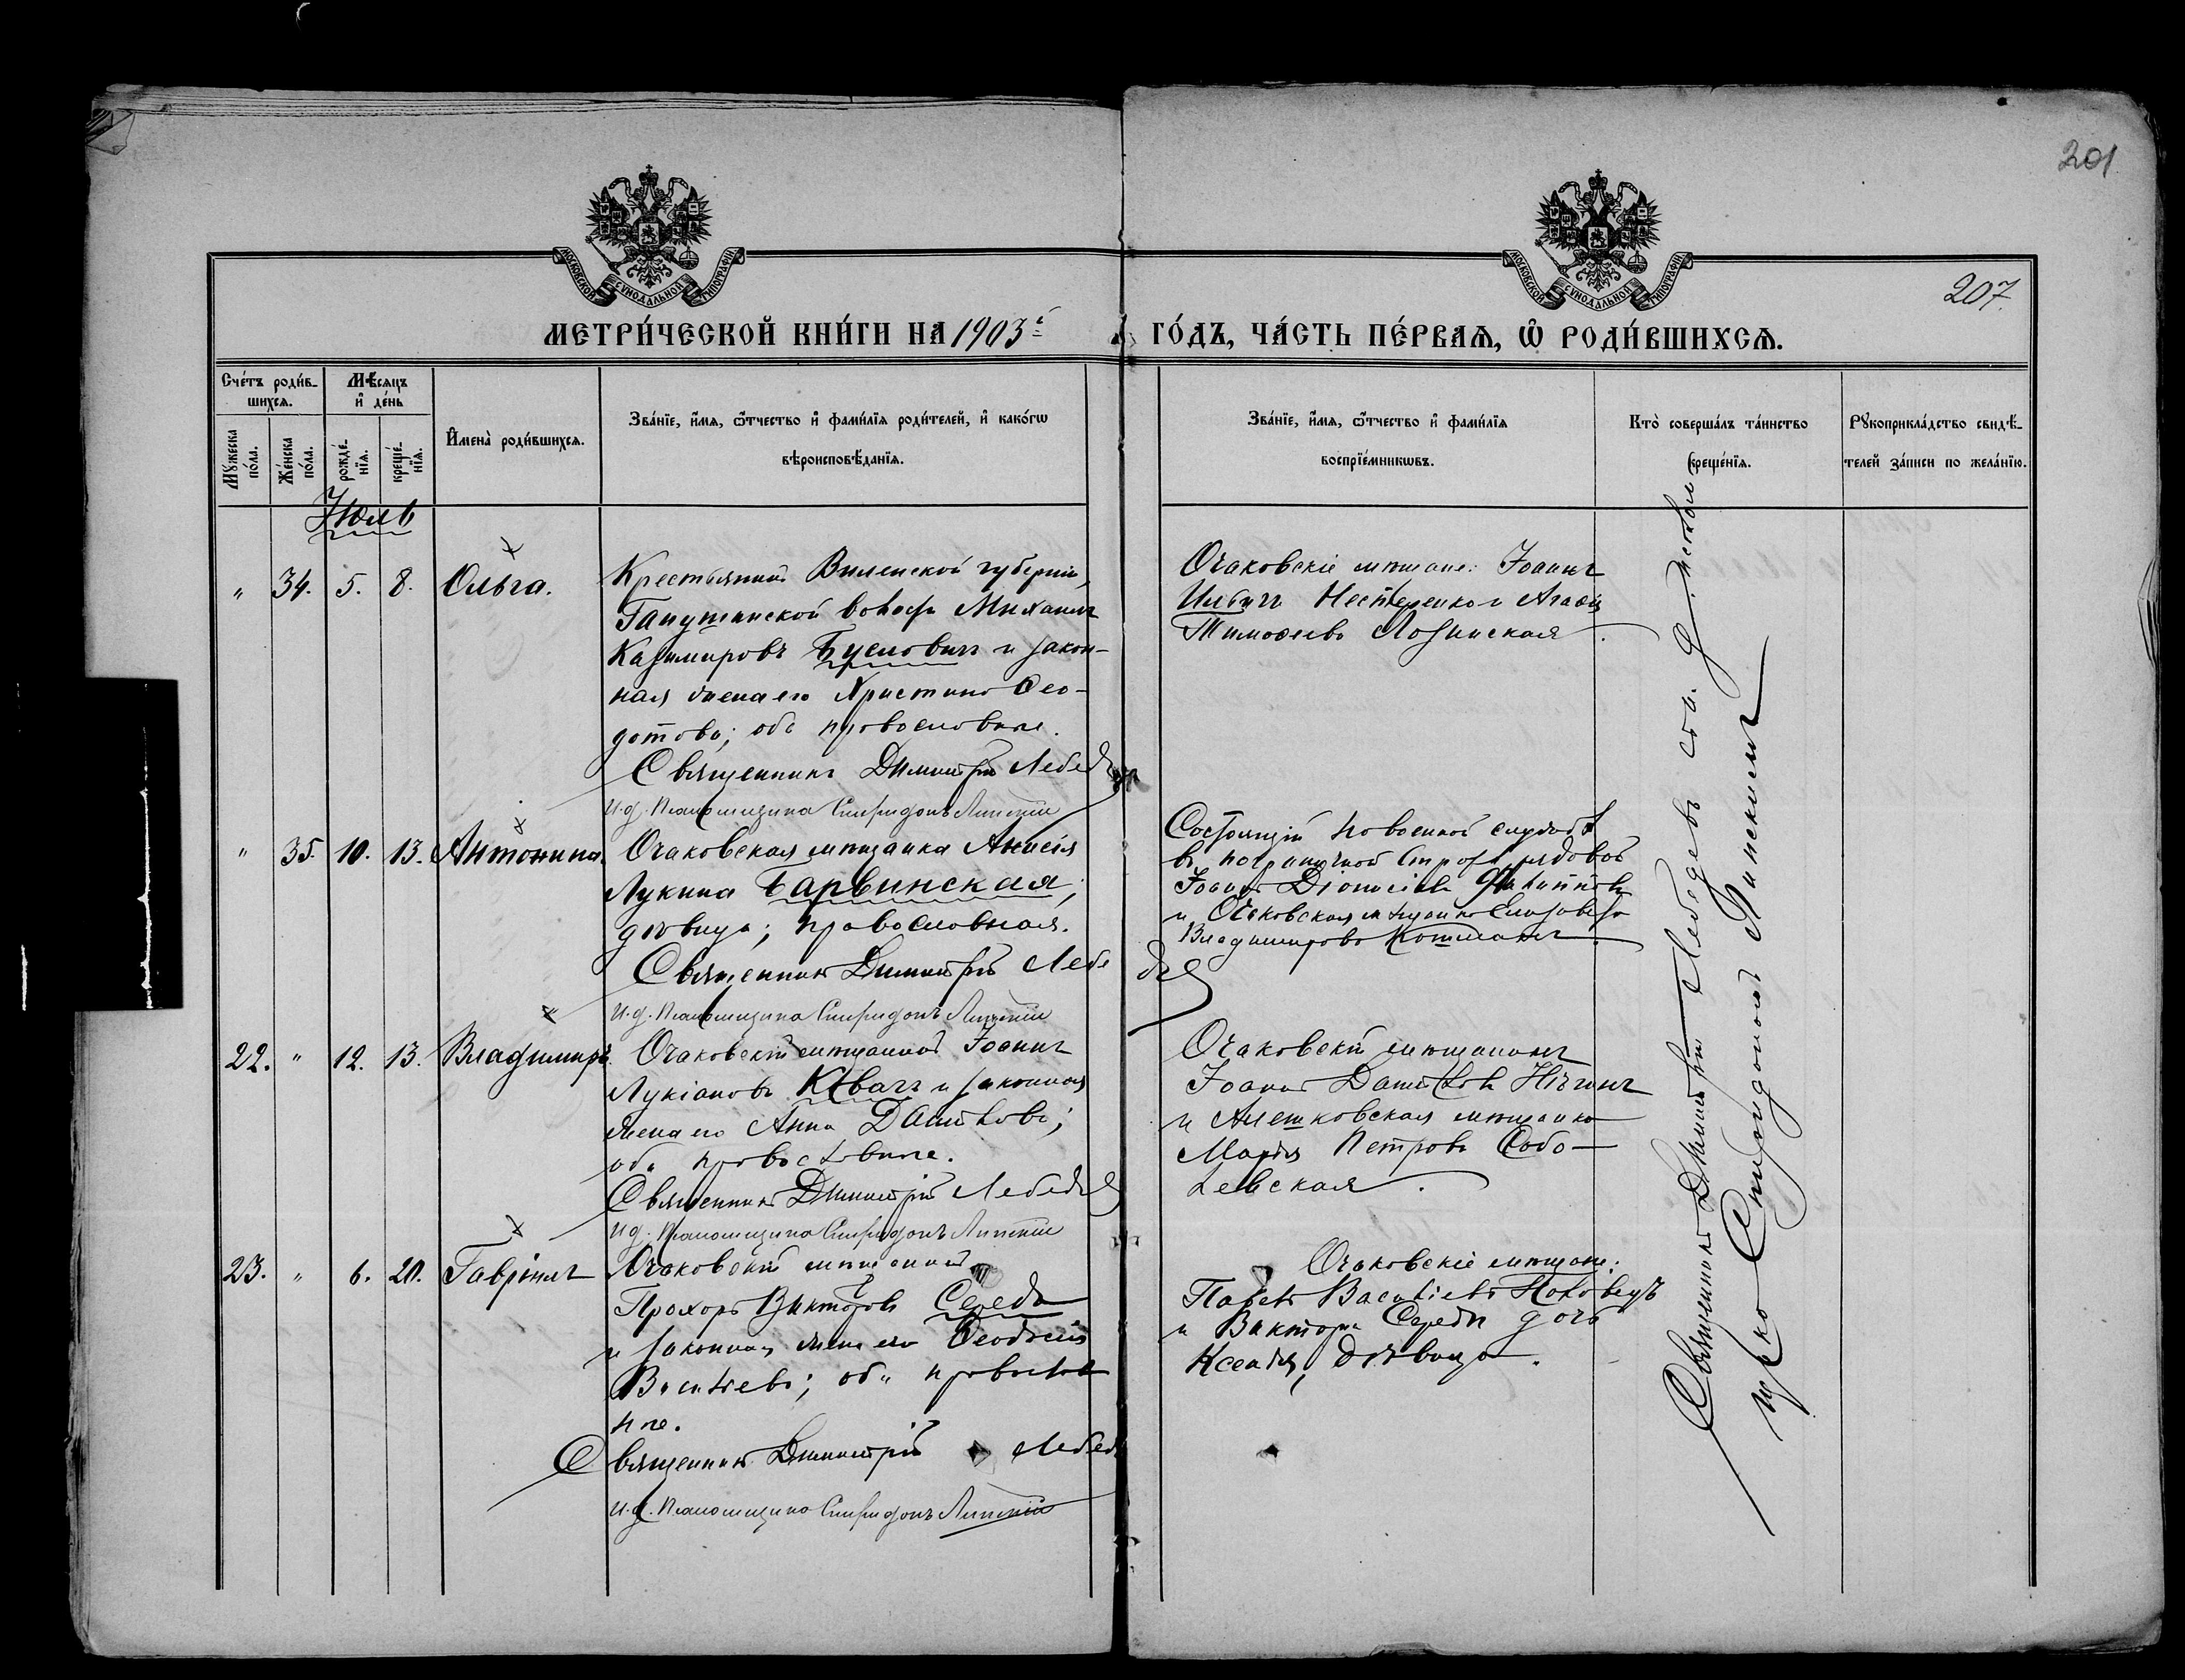 201
207
МОСКОВСКОЙ СУНОДАЛЬНОЙ ТИПОГРАФІИ
МОСКОВСКОЙ СУНОДАЛЬНОЙ ТИПОГРАФІИ
МЕТРИ́ЧЕСКОЙ КНИ́ГИ НА 1903й ГО́ДЪ, ЧА́СТЬ ПЕ́РВАѦ, Ѽ РОДИ́ВШИХСѦ.
Сче́тъ роди́в-
шихсѧ.
Мꙋжеска по́ла.
Же́нска по́ла.
Мѣ́сяцъ и҆ де́нь
рожде́-
нїѧ.
креще́-
нїѧ.
И҆мена̀ роди́вшихсѧ.
Зва́нїе, и҆́мѧ, ѻ҆́тчество и҆ фами́лїѧ роди́телей, и҆ како́гѡ
вѣроисповѣ́данїѧ.
Зва́нїе, и҆́мѧ, ѻ҆́тчество и҆ фами́лїѧ
воспрїе́мникѡвъ.
Кто̀ соверша́лъ та́инство
креще́нїѧ.
Рꙋкоприкла́дство свидѣ́-
телей за́писи по жела́нїю.
Июль
" 34. 5. 8. Ольга.
Крестьянинъ Виленской губерніи,
волости Михаилъ
Казимировъ Буеловичъ и закон-
ная жена его Христина Ѳео-
дотова; оба православные.
Священникъ Димитрій Лебедев
И. д. Псаломщика Спиридонъ Липскій
Очаковскіе мѣщане: Іоаннъ
Ильичъ Нестеренко и Агафія
Тимоѳеева Лозинская.
" 35. 10. 13. Антонина.
Очаковская мѣщанка Анисія
Лукина Барвинская,
дѣвица; православная.
Священникъ Димитрій Лебедев
И. д. Псаломщика Спиридонъ Липскій
Состоящій на военной службѣ
въ пограничной стражѣ рядовой
Іоаннъ Діонисіевъ
и Очаковская мѣщанка Елизавета
Владимирова
22. " 12. 13. Владимиръ.
Очаковскій мѣщанинъ Іоаннъ
Лукіановъ Квачъ и законная
жена его Анна Данилова;
оба православные.
Священникъ Димитрій Лебедев
И. д. Псаломщика Спиридонъ Липскій
Очаковскій мѣщанинъ
Іоаннъ Даниловъ
и Алешковская мѣщанка
Марія Петрова Собо-
левская.
23. " 6. 20. Гавріилъ
Очаковскій мѣщанинъ
Прохоръ Викторовъ Середа
и законная жена его Ѳеодосія
Васильева; оба православ
ные.
Священникъ Димитрій Лебедев
И. д. Псаломщика Спиридонъ Липскій
Очаковскіе мѣщане:
Павелъ Васильевъ
и Виктора Середы дочь
Ксенія, дѣвица.
Священникъ Димитрій Лебедевъ съ и. д. псалом
щика Спиридономъ Липскимъ